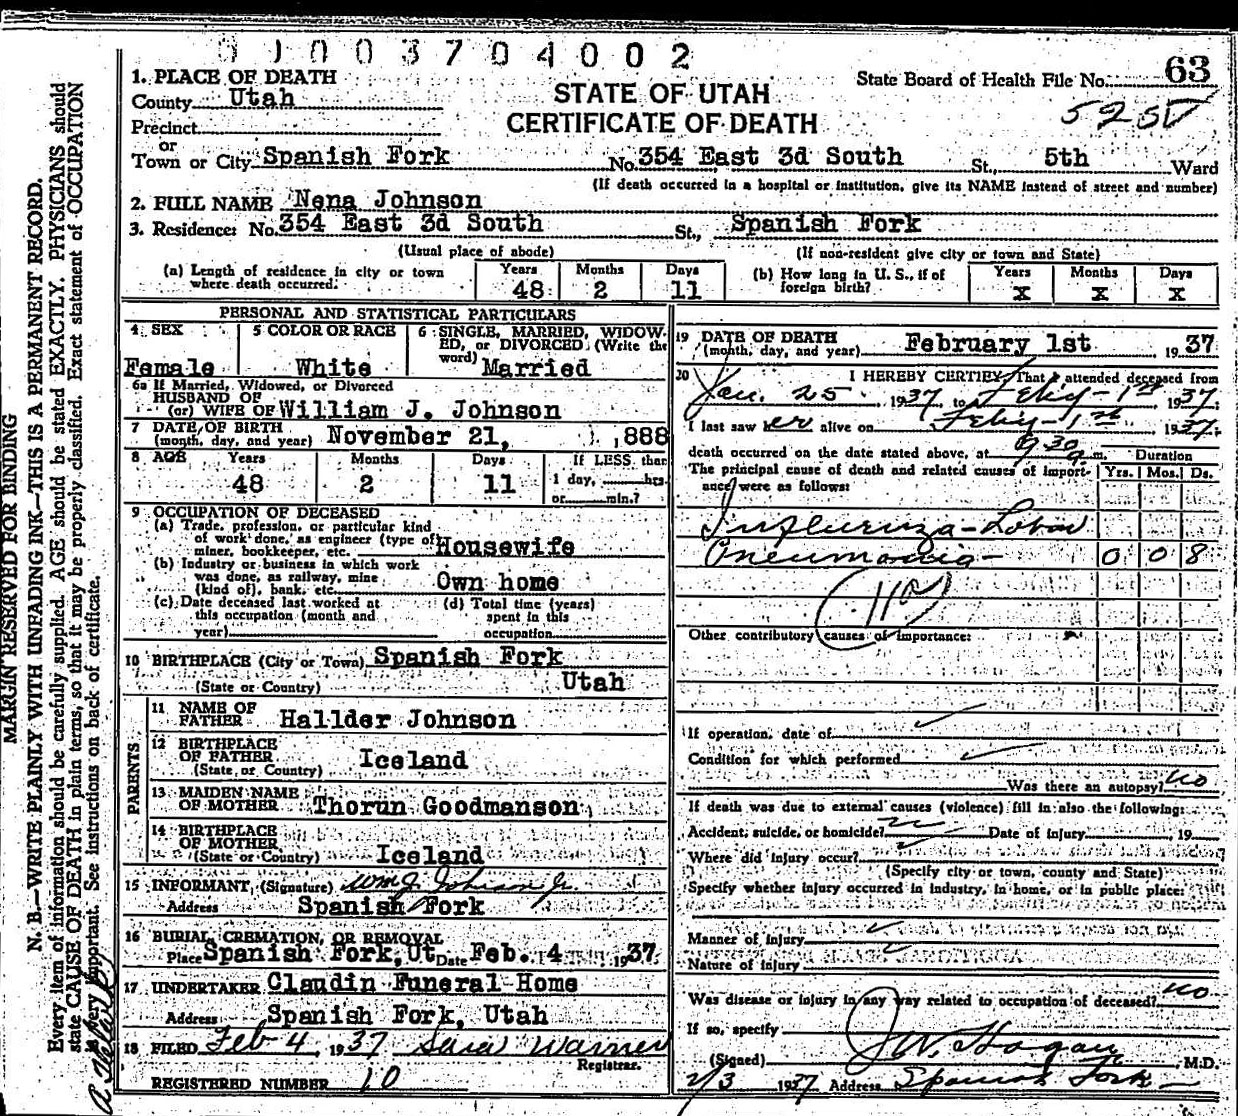 0 0 0 3 7 0 4 0 0 2
1. PLACE OF DEATH
County Utah
Precinct
or
Town or City Spanish Fork
STATE OF UTAH
CERTIFICATE OF DEATH
State Board of Health File No. 63
No. 354 East 3d South St., 5th Ward
(If death occurred in a hospital or institution, give its NAME instead of street and number)
2. FULL NAME Nena Johnson
3. Residence: No. 354 East 3d South St., Spanish Fork
(Usual place of abode) (If non-resident give city or town and State)
(a) Length of residence in city or town where death occurred. Years 48 Months 2 Days 11
(b) How long in U. S., if of foreign birth? Years X Months X Days X
PERSONAL AND STATISTICAL PARTICULARS
4 SEX Female
5 COLOR OR RACE White
6 SINGLE, MARRIED, WIDOWED, or DIVORCED (Write the word) Married
6a If Married, Widowed, or Divorced
HUSBAND OF
(or) WIFE OF William J. Johnson
7 DATE OF BIRTH
(month, day, and year) November 21, 1,888
8 AGE Years 48 Months 2 Days 11
If LESS than
1 day, hrs.
or min.?
9 OCCUPATION OF DECEASED
(a) Trade, profession, or particular kind
of work done, as engineer (type of)
miner, bookkeeper, etc. Housewife
(b) Industry or business in which work
was done, as railway, mine
(kind of), bank, etc. Own home
(c) Date deceased last worked at
this occupation (month and
year)
(d) Total time (years)
spent in this
occupation
10 BIRTHPLACE (City or Town) Spanish Fork
(State or Country) Utah
PARENTS
11 NAME OF
FATHER Hallder Johnson
12 BIRTHPLACE
OF FATHER Iceland
(State or Country)
13 MAIDEN NAME
OF MOTHER Thorun Goodmanson
14 BIRTHPLACE
OF MOTHER
(State or Country) Iceland
15 INFORMANT (Signature) Wm J. Johnson Jr.
Address Spanish Fork
16 BURIAL, CREMATION, OR REMOVAL
Place Spanish Fork, Ut Date Feb. 4 1937
17 UNDERTAKER Claudin Funeral Home
Address Spanish Fork, Utah
18 FILED Feb 4, 1937 Sara Warner
Registrar.
REGISTERED NUMBER 10
19 DATE OF DEATH
(month, day, and year) February 1st 1937
20 I HEREBY CERTIFY, That I attended deceased from
Jan. 25 1937 to Feby-1st 1937.
I last saw her alive on Feby-1st 1937.
death occurred on the date stated above, at 9 30 a m. Duration
The principal cause of death and related causes of importance were as follows: Yrs. Mos. Ds.
Influenza - Lobar
Pneumonia - 0 0 8
Other contributory causes of importance:
If operation, date of
Condition for which performed
Was there an autopsy? no
If death was due to external causes (violence) fill in also the following:
Accident, suicide, or homicide? Date of injury 19
Where did injury occur?
(Specify city or town, county and State)
Specify whether injury occurred in industry, in home, or in public place:
Manner of injury
Nature of injury
Was disease or injury in any way related to occupation of deceased? no
If so, specify
(Signed) J W. Hagan M.D.
2/3 1937 Address Spanish Fork
MARGIN RESERVED FOR BINDING
N. B.—WRITE PLAINLY WITH UNFADING INK—THIS IS A PERMANENT RECORD.
Every item of information should be carefully supplied. AGE should be stated EXACTLY. PHYSICIANS should
state CAUSE OF DEATH in plain terms, so that it may be properly classified. Exact statement of OCCUPATION
is very important. See instructions on back of certificate.